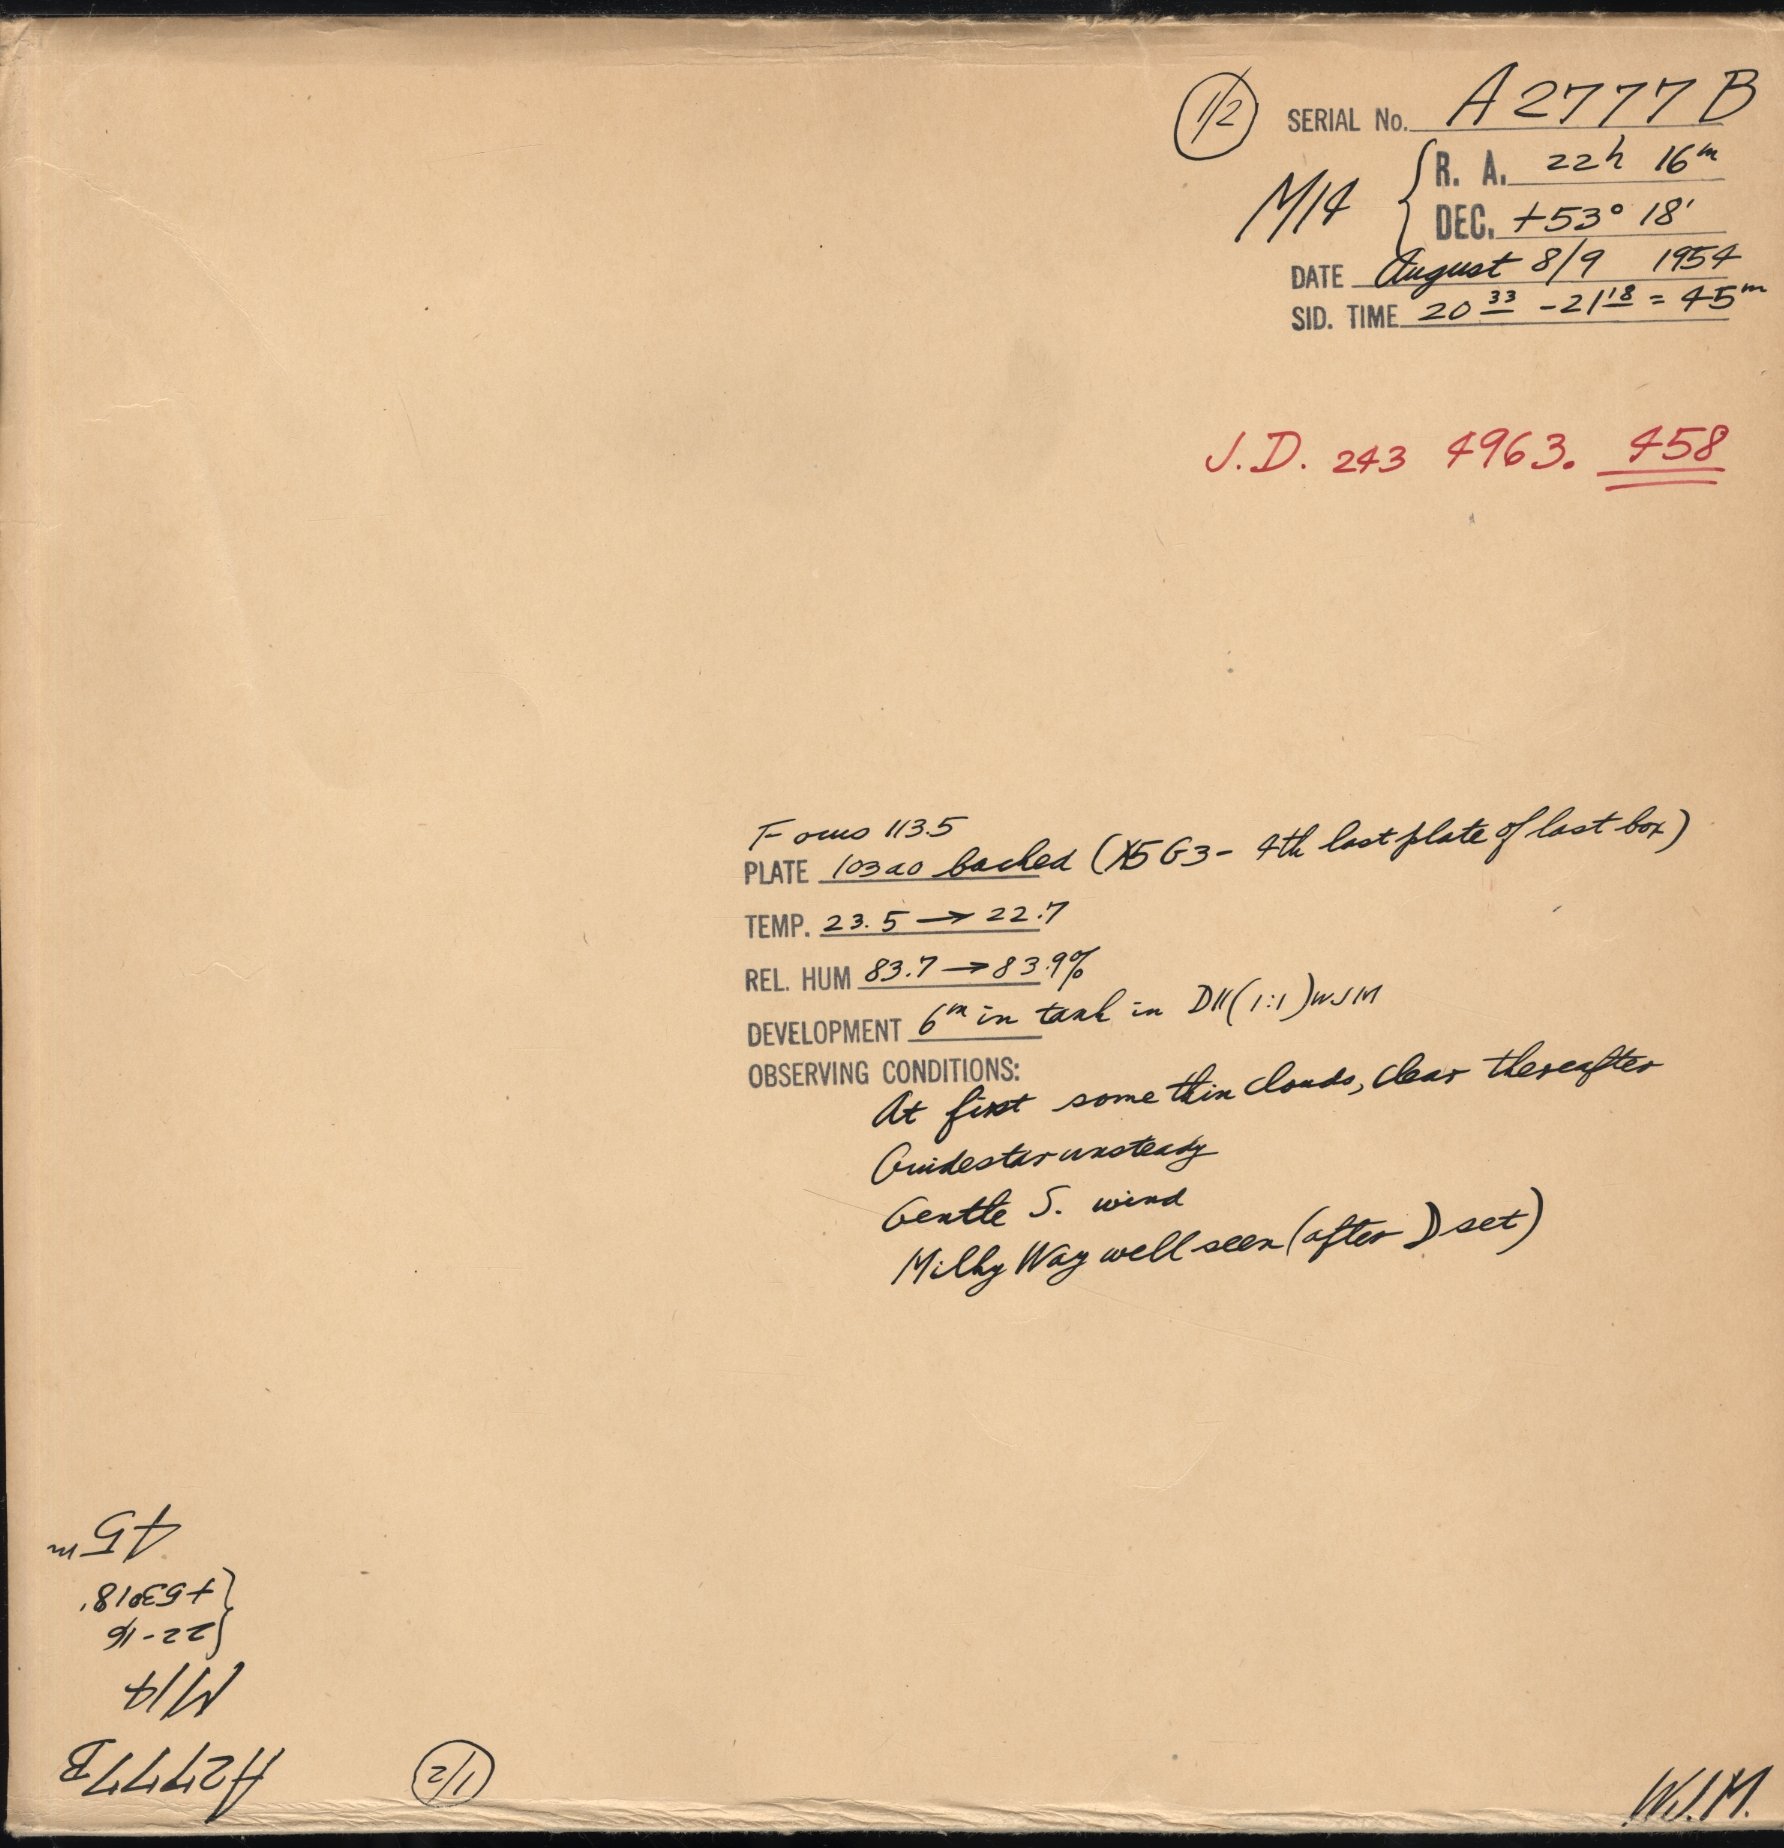 1/2 SERIAL No. A2777B
M14 { R. A. 22h 16m
DEC. +53° 18'
DATE August 8/9 1954
SID. TIME 20 33 - 21 18 = 45m
J.D. 243 4963. 458
Focus 113.5
PLATE 103a0 backed (X5G3- 4th last plate of last box)
TEMP. 23.5 → 22.7
REL. HUM 83.7 → 83.9%
DEVELOPMENT 6m in tank in D11(1:1) WJM
OBSERVING CONDITIONS:
At first some thin clouds, clear thereafter
Guidestar unsteady
Gentle S. wind
Milky Way well seen (after ☽ set)
W.J.M.
1/2
A2777B
M14
{ 22-16
+53°18'
45m